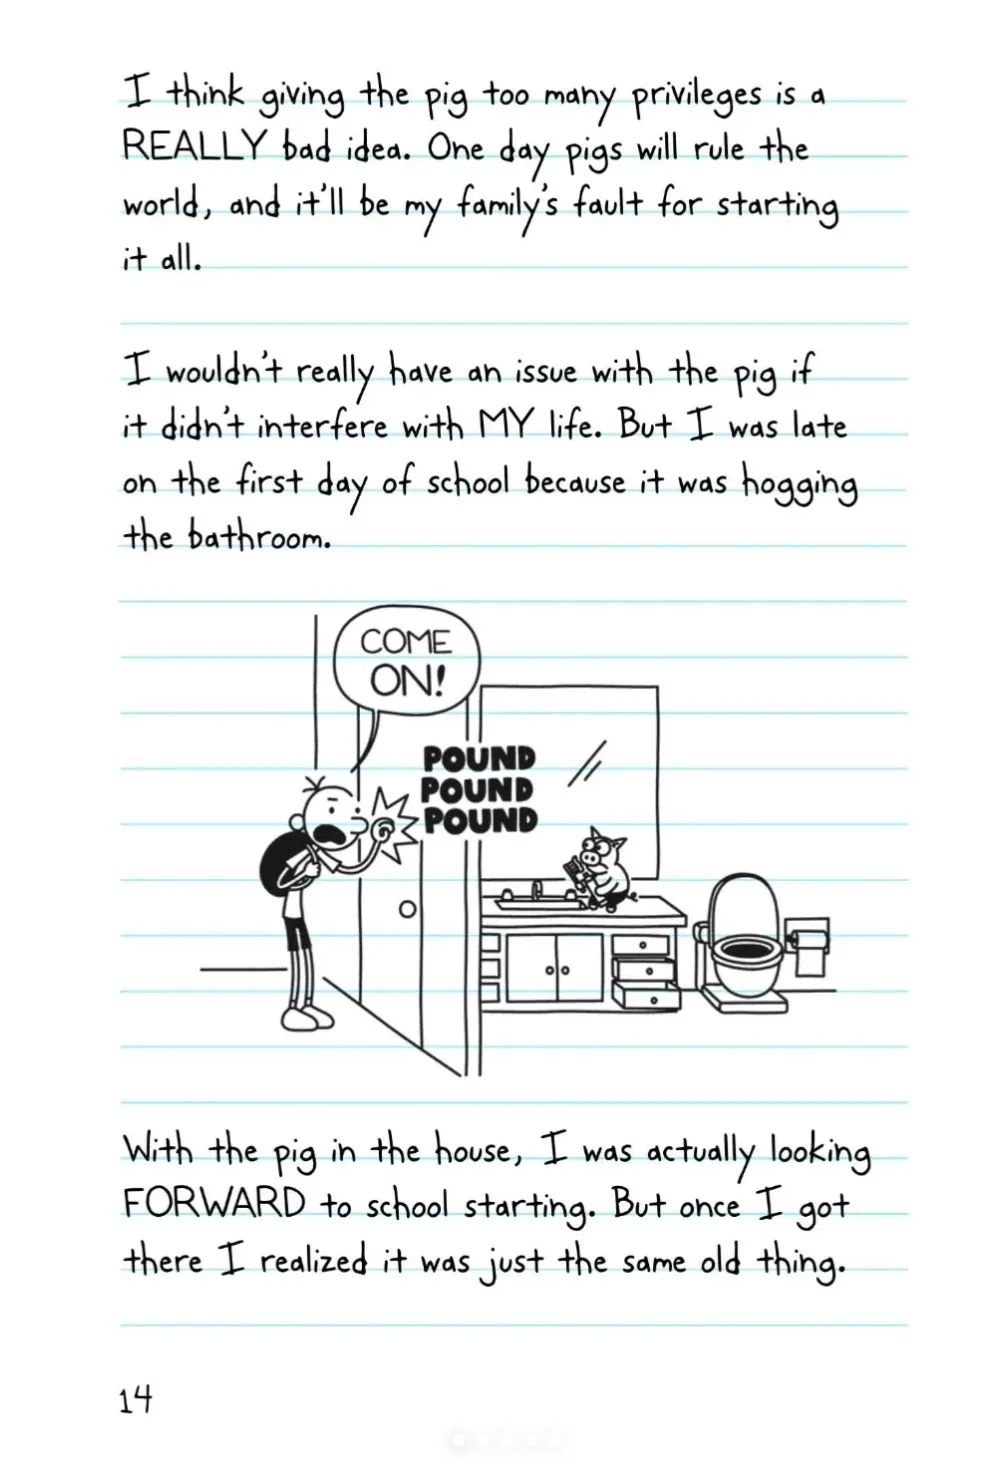 I think giving the pig too many privileges is a
REALLY bad idea. One day pigs will rule the
world, and it'll be my family's fault for starting
it all.
I wouldn't really have an issue with the pig if
it didn't interfere with MY life. But I was late
on the first day of school because it was hogging
the bathroom.
COME
ON!
POUND
POUND
POUND
With the pig in the house, I was actually looking
FORWARD to school starting. But once I got
there I realized it was just the same old thing.
14